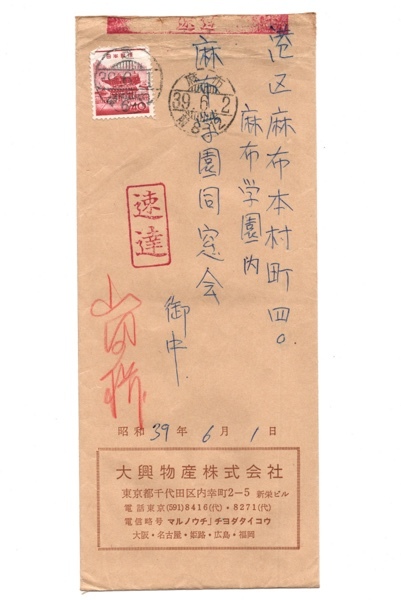 港区麻布本村町四〇.
麻布学園内
麻布學園同窓会
御中.
麻布
39.6.2
速達
昭和39年6月1日
大興物産株式会社
東京都千代田区内幸町2-5 新栄ビル
電話東京(591)8416(代)・8271(代)
電信略号 マルノウチ」チヨダタイコウ
大阪・名古屋・姫路・広島・福岡